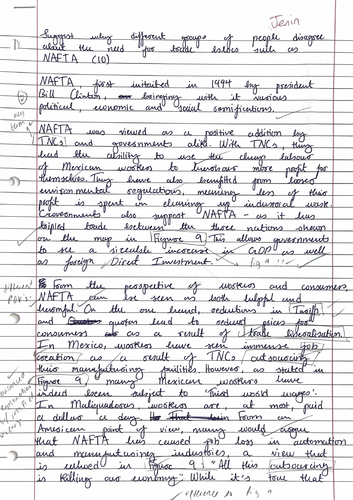 Jenin
Suggest why different groups of people disagree
about the need for trade blocs such as
NAFTA (10)
NAFTA, first initiated in 1994 by president
Bill Clinton, bringing with it various
political, economic and social ramifications.
NAFTA was viewed as a positive addition by
TNCs and governments alike. With TNCs, they
had the ability to use the cheap labour
of Mexican workers to turnover more profit for
themselves. They have also benefitted from looser
environmental regulations, meaning less of their
profit is spent on cleaning up industrial waste.
Governments also support NAFTA - as it has
tripled trade between the three nations shown
on the map in Figure 9. This allows governments
to see a sizeable increase in GDP as well
as Foreign Direct Investment.
Fig 9
From the perspective of workers and consumers,
NAFTA can be seen as both helpful and
harmful. On the one hand, reductions in Tariffs
and quotas lead to reduced prices for
consumers as a result of trade liberalisation.
In Mexico, workers have seen immense job
creation as a result of TNCs outsourcing
their manufacturing facilities. However, as stated in
Figure 9, many Mexican workers have
indeed been subject to 'third world wages'.
In Maliquadoras, workers are, at most, paid
a dollar a day. From an
American point of view, many would argue
that NAFTA has caused job loss in automation
and manufacturing industries, a view that
is echoed in Figure 9. "All this outsourcing
is killing our economy." While it's true that
reference to Fig 9